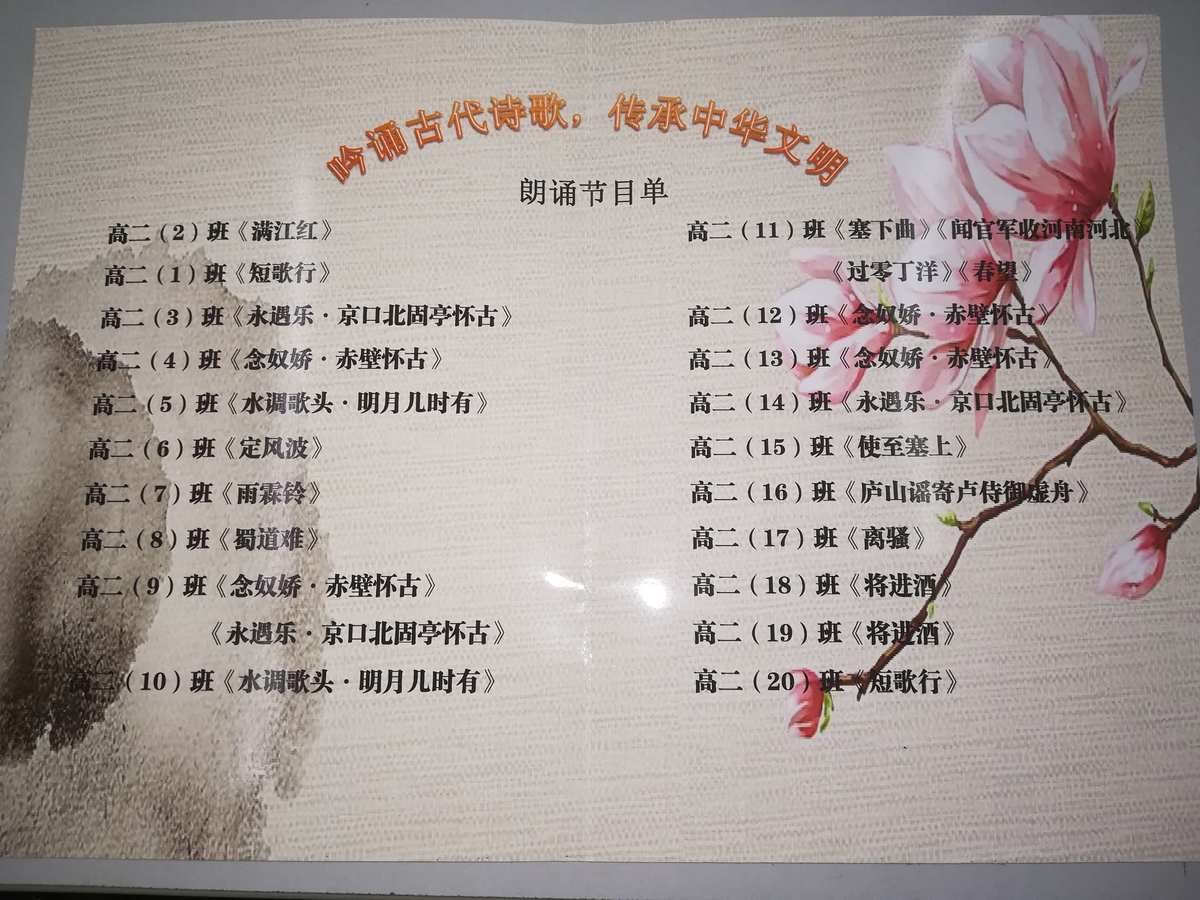 吟诵古代诗歌，传承中华文明
朗诵节目单
高二（2）班《满江红》
高二（1）班《短歌行》
高二（3）班《永遇乐·京口北固亭怀古》
高二（4）班《念奴娇·赤壁怀古》
高二（5）班《水调歌头·明月几时有》
高二（6）班《定风波》
高二（7）班《雨霖铃》
高二（8）班《蜀道难》
高二（9）班《念奴娇·赤壁怀古》
《永遇乐·京口北固亭怀古》
高二（10）班《水调歌头·明月几时有》
高二（11）班《塞下曲》《闻官军收河南河北》
《过零丁洋》《春望》
高二（12）班《念奴娇·赤壁怀古》
高二（13）班《念奴娇·赤壁怀古》
高二（14）班《永遇乐·京口北固亭怀古》
高二（15）班《使至塞上》
高二（16）班《庐山谣寄卢侍御虚舟》
高二（17）班《离骚》
高二（18）班《将进酒》
高二（19）班《将进酒》
高二（20）班《短歌行》